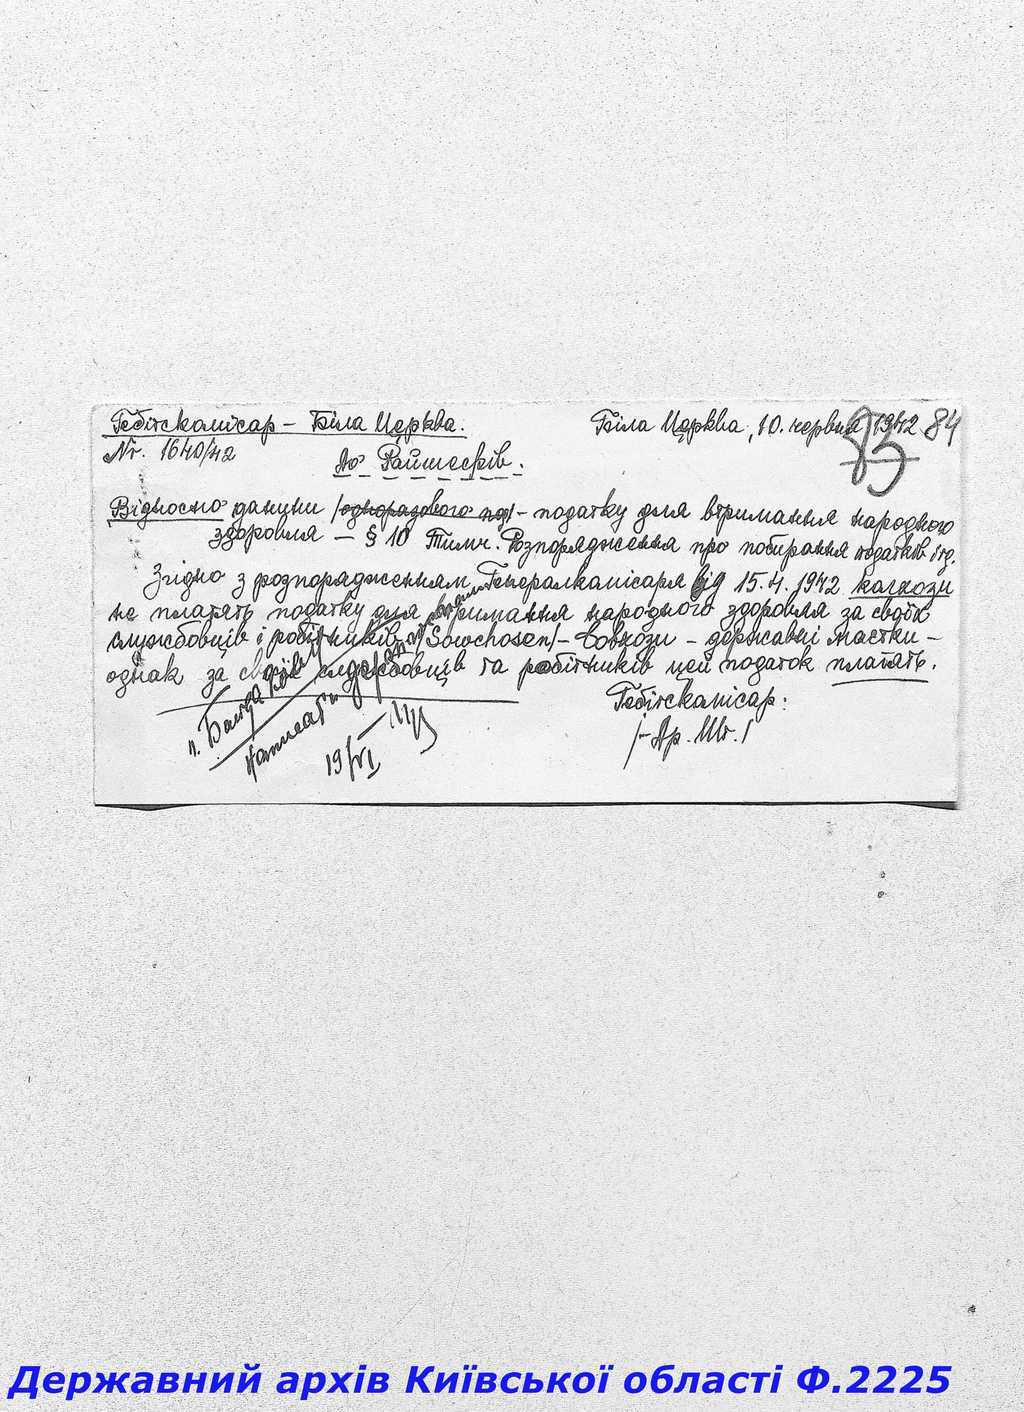 Гебітскомісар – Біла Церква.
Біла Церква, 10. червня 1942 84
83
Nr. 1640/42
До Райшефів.
Відносно данини /одноразового под/ – податку для втримання народного
здоровля – § 10 Тимч. Розпорядження про побирання податків і тд.
Згідно з розпорядженням Генералкомісаря від 15.4.1942 колхози
не платять податку для втримання народного здоровля за своїх
службовців і робітників /Sowchosen/ – Совхози – державні маєтки –
однак за своїх службовців та робітників цей податок платять.
Гебітскомісар:
/– Др. Шт. /
написати
19/VI
Державний архів Київської області Ф.2225